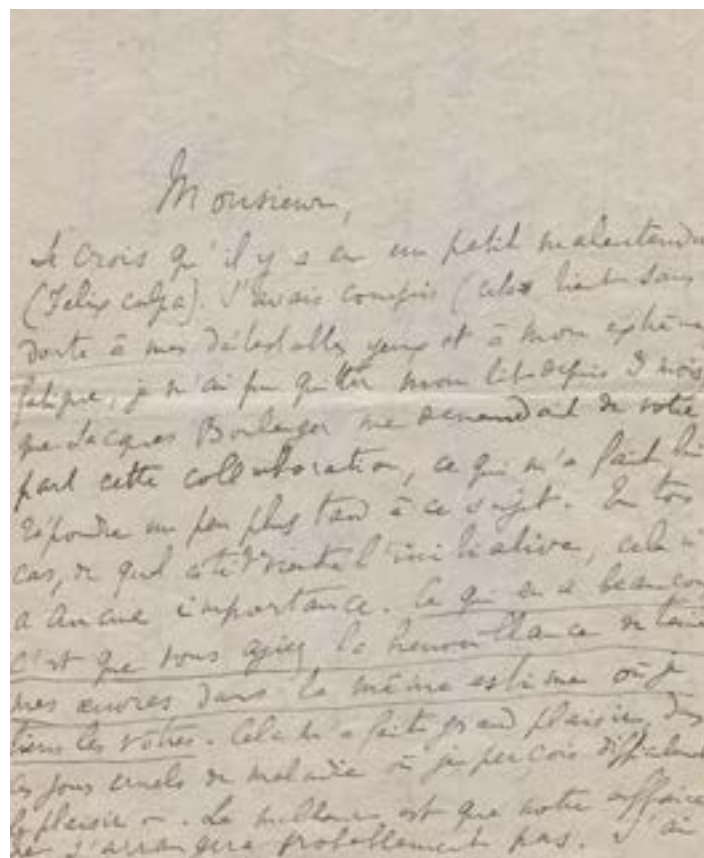 Monsieur,
Je crois qu'il y a eu un petit malentendu
(Felix culpa). J'avais compris (cela tient sans
doute à mes détestables yeux et à mon extrême
fatigue, je n'ai pu quitter mon lit depuis 3 mois
que Jacques Boulenger me demandait de votre
part cette collaboration, ce qui m'a fait lui
répondre un peu plus tard à ce sujet. En tous
cas, de quel côté vienne l'initiative, cela n'
a aucune importance. Ce qui en a beaucoup
c'est que vous ayiez la bienveillance de tenir
mes œuvres dans la même estime où je
tiens les vôtres. Cela m'a fait grand plaisir, dans
les jours cruels de maladie où je perçois difficilement
le plaisir. Le malheur est que notre affaire
ne s'arrangera probablement pas. J'ai